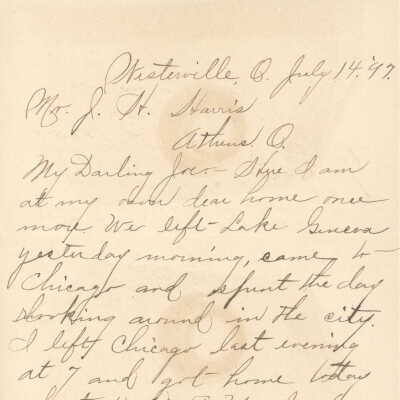 Westerville, O. July 14. '97.
Mr. J. H. Harris
Athens O.
My Darling Joe:- Here I am
at my own dear home once
more. We left Lake Geneva
yesterday morning, came to
Chicago and spent the day
looking around in the city.
I left Chicago last evening
at 7 and got home today